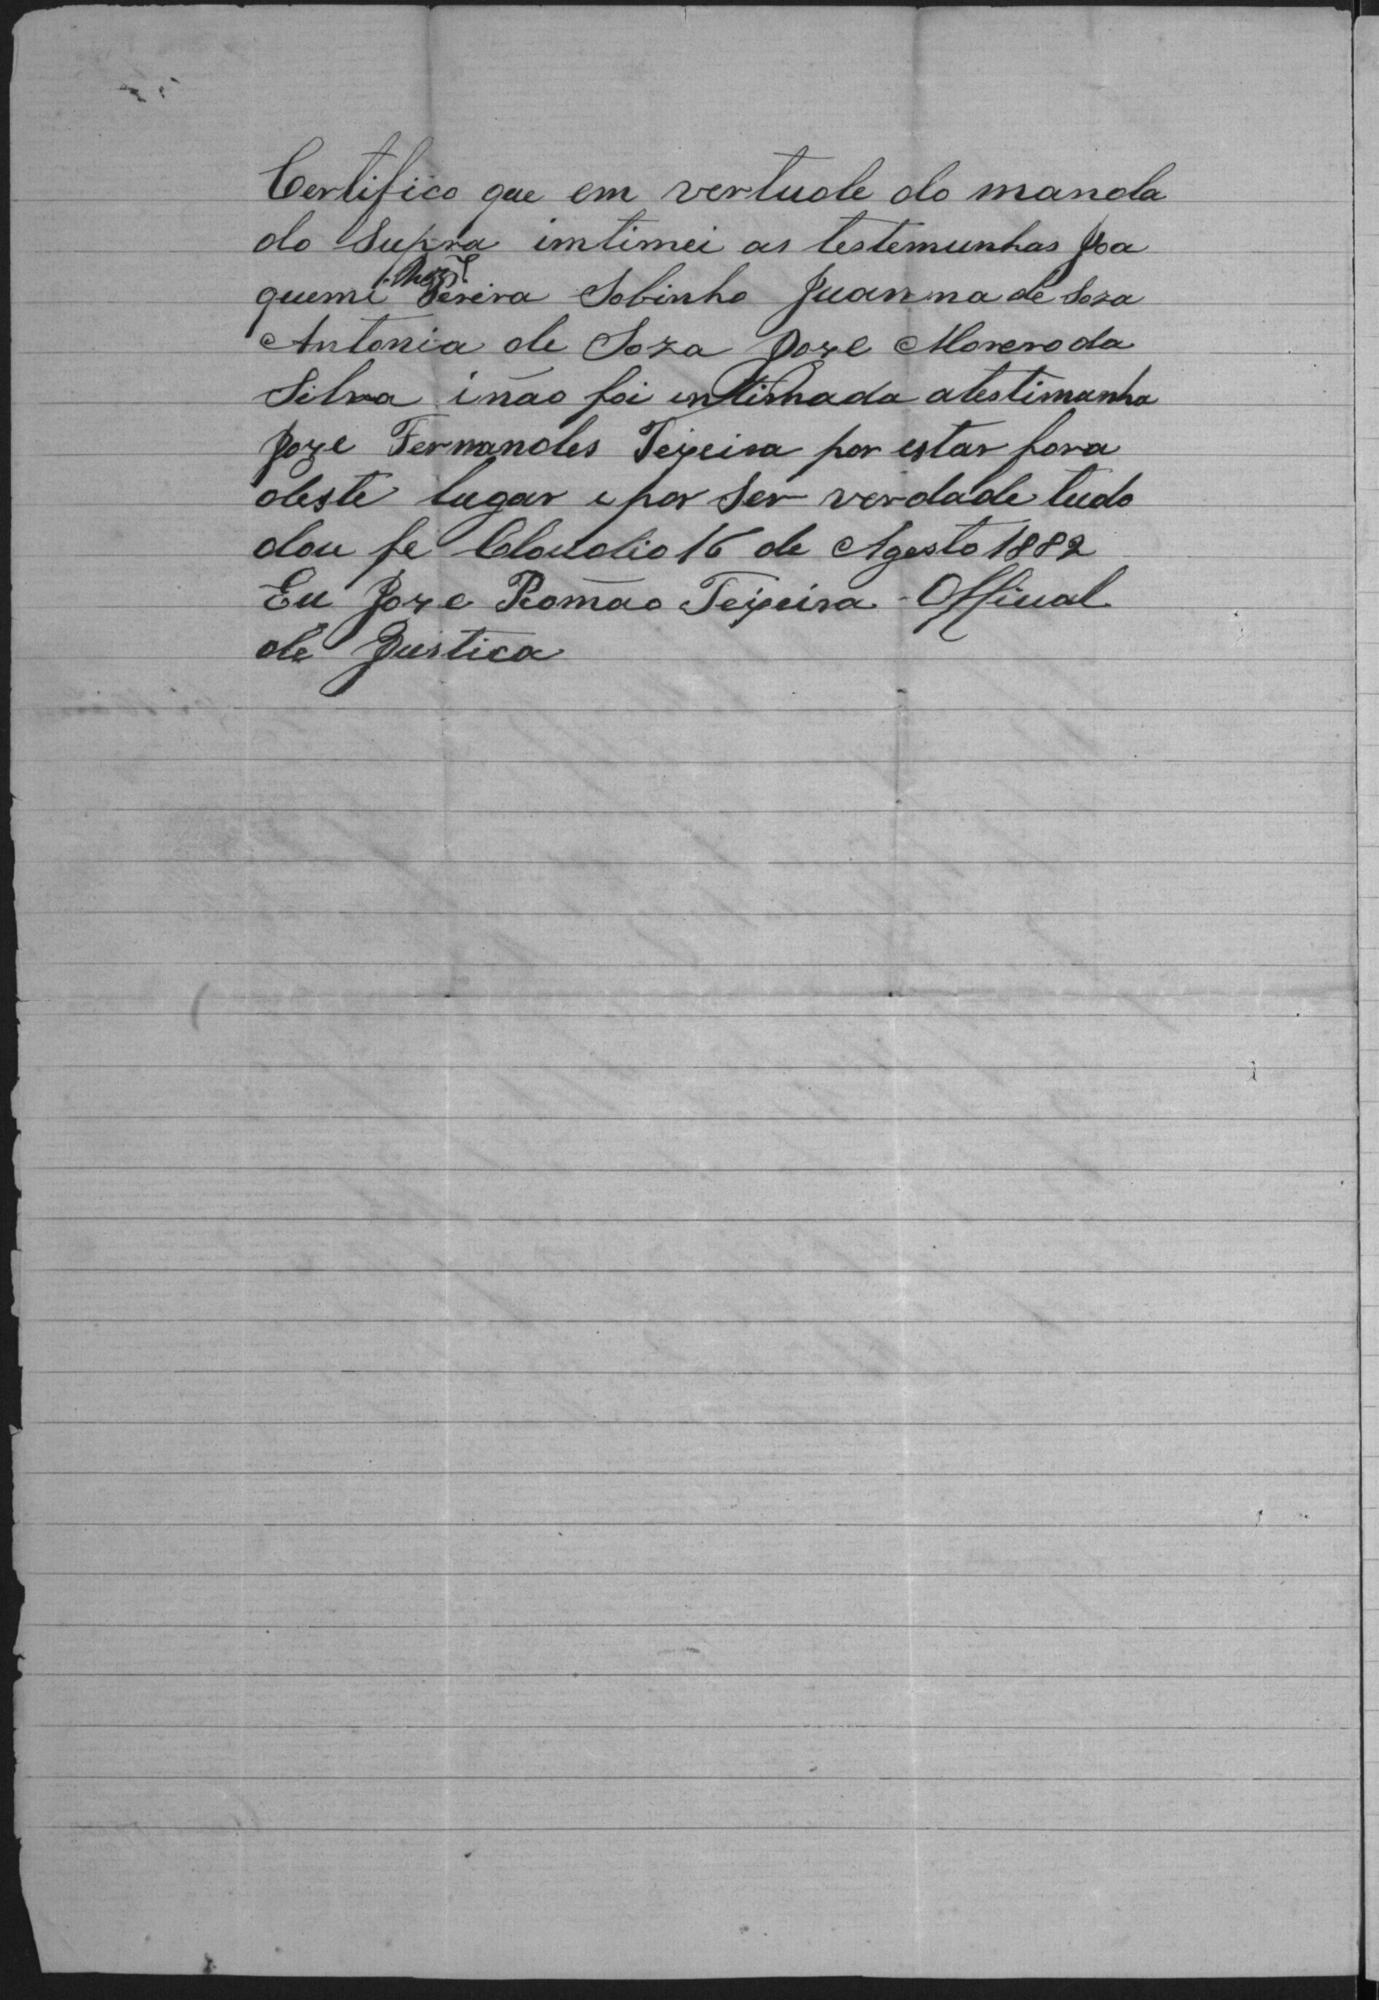 Certifico que em vertude do manda
do Supra imtimei as testemunhas Joa
quem Pereira Sobinho Juanna de Soza
Antonia de Soza Joze Morero da
Silva i não foi intimada atestimunha
Joze Fernandes Teixeira por estar fora
deste lugar e por Ser verdade tudo
dou fe Claudio 16 de Agosto 1882
Eu Joze Romão Teixeira Official
de Justica